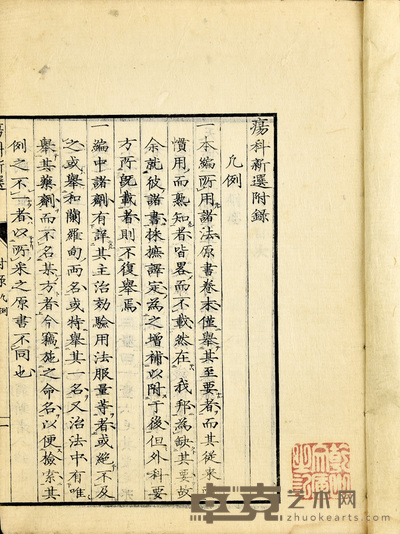 瘍科新選附録
凡例
一本編所用諸法原書卷末僅舉其至要者而其從來
慣用而熟知者皆畧而不載然在我邦為缺其要故
余就彼諸書採摭譯定為之增補以附于後但外科要
方所既載者則不復舉焉
一編中諸劑有詳其主治効驗用法服量等者或絶不及
之或舉和蘭羅甸两名或特舉其一名又治法中有唯
舉其藥劑而不名某方者今竊施之命名以便檢索其
例之不一者以所采之原書不同也
瘍科新選 附錄凡例 一
卓克艺术网
zhuokearts.com